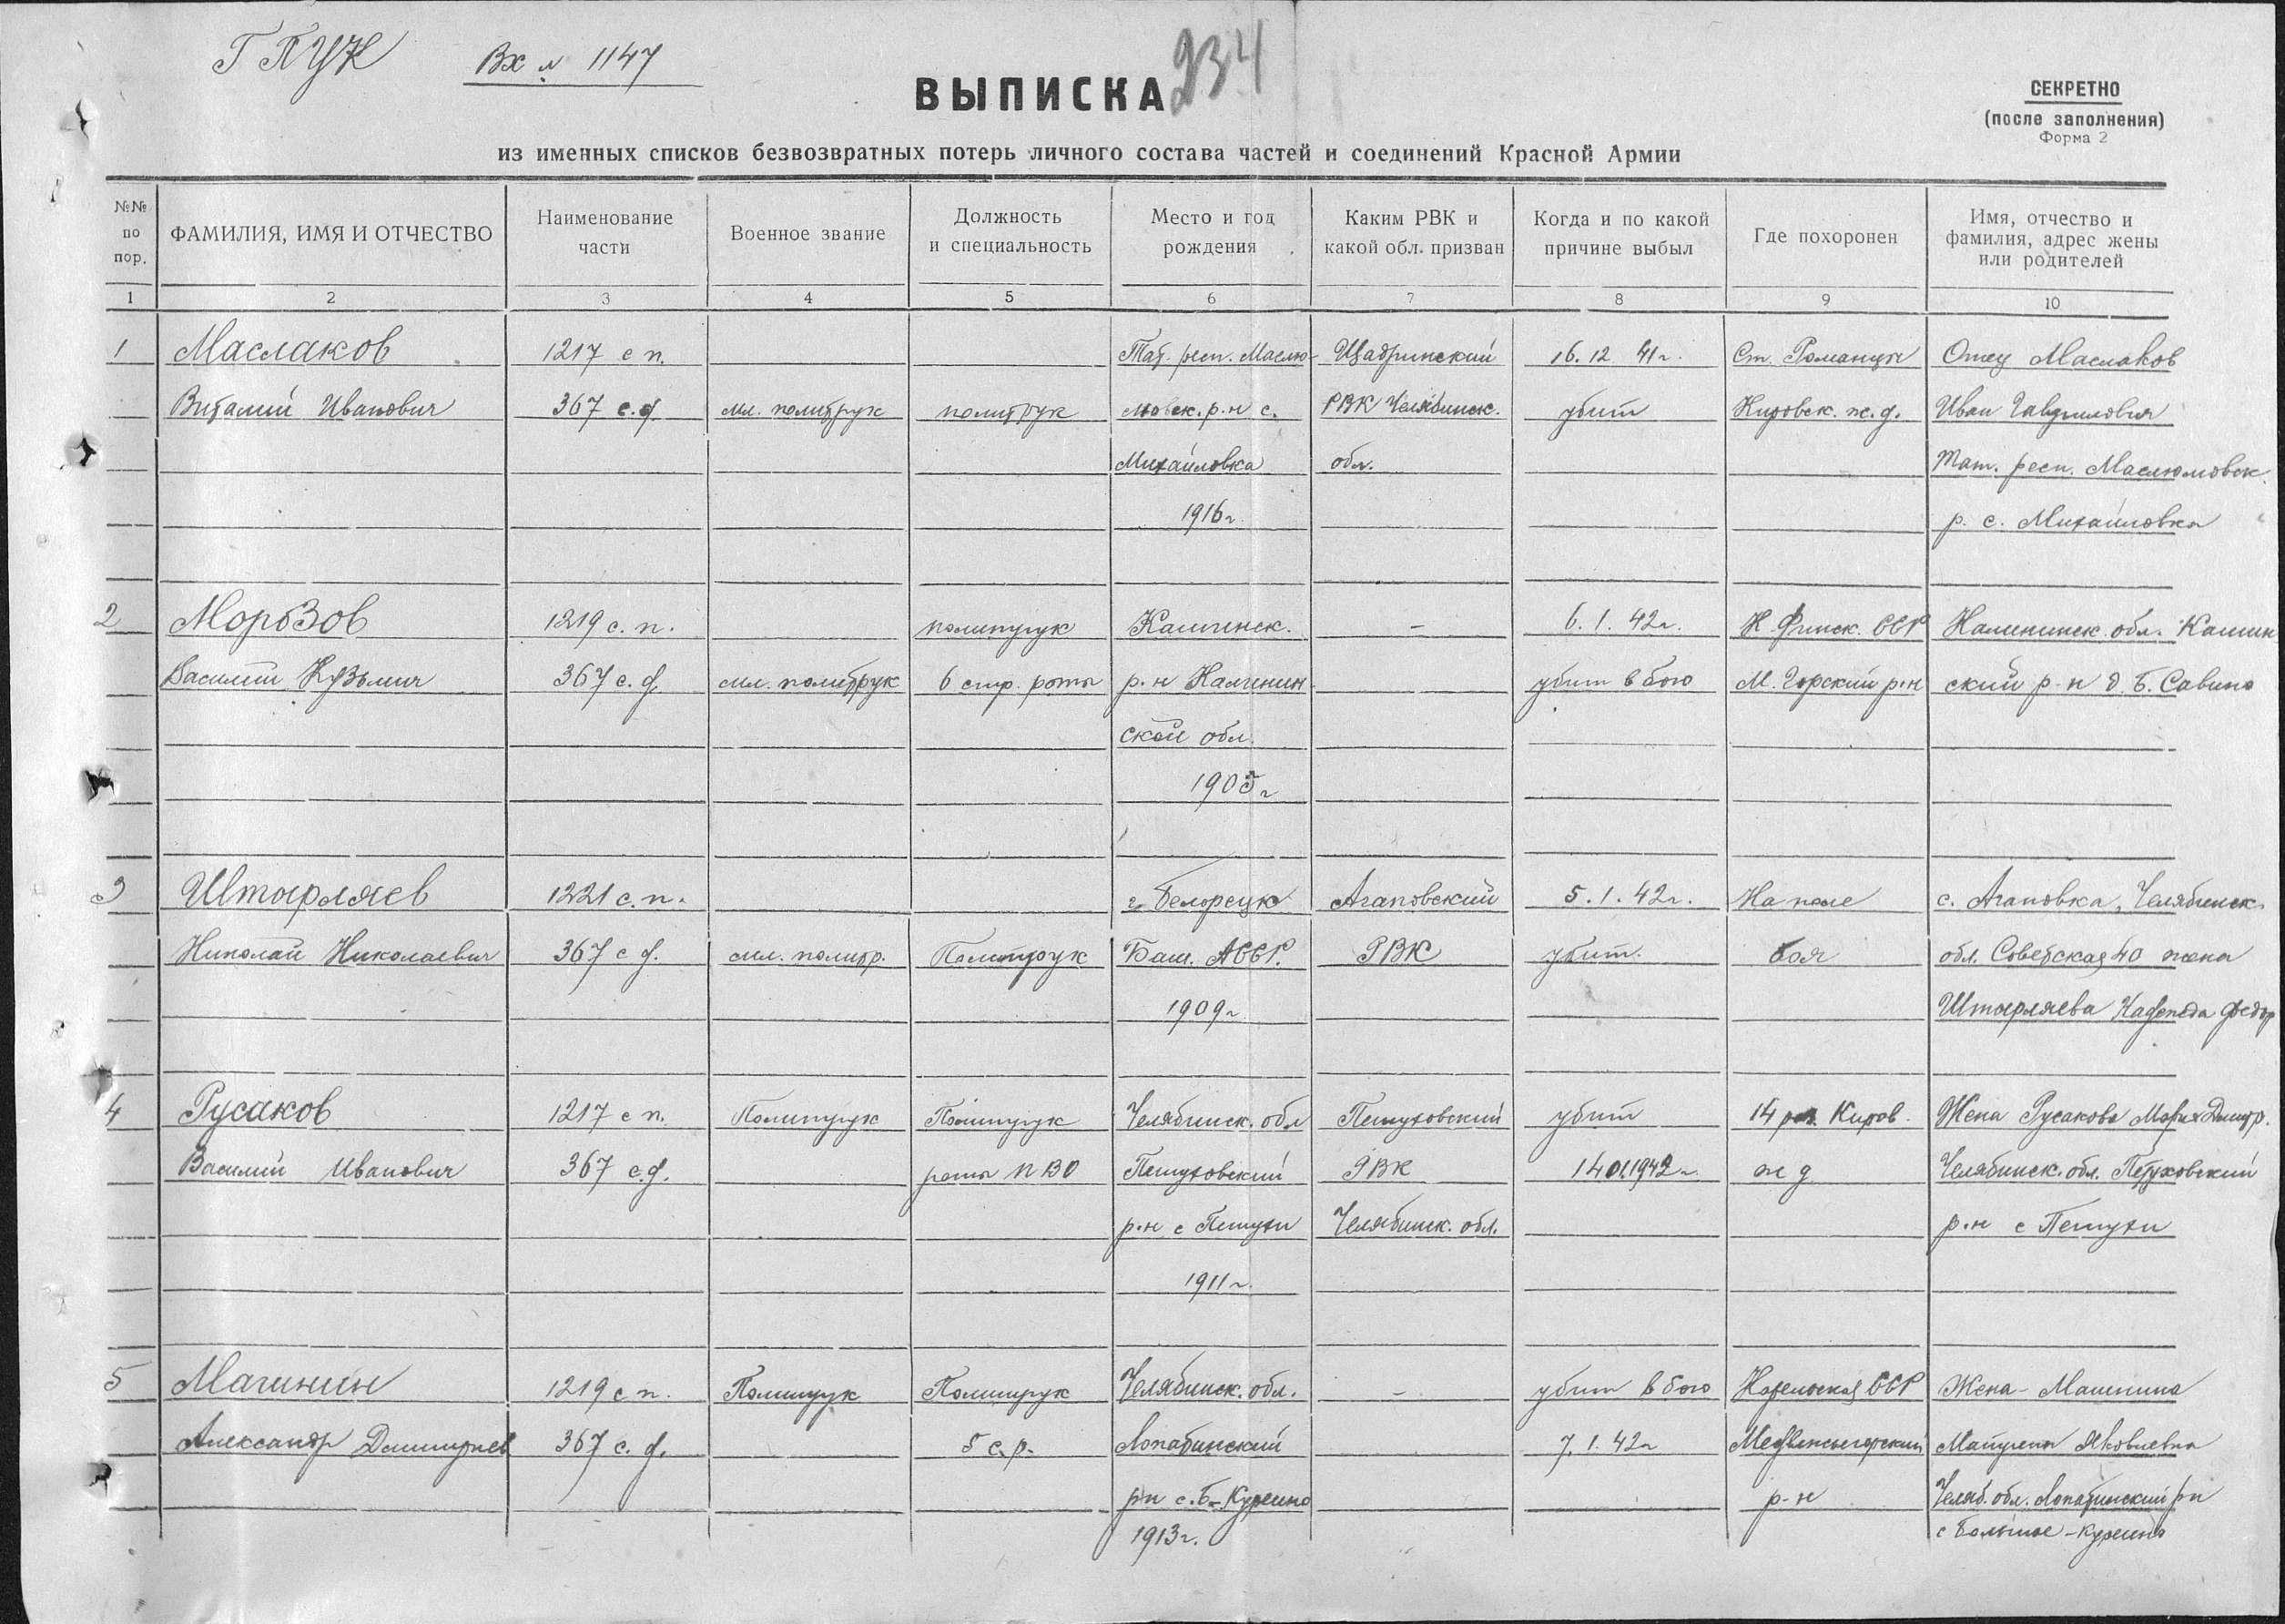 ГПУК Вх № 1147
234
ВЫПИСКА
СЕКРЕТНО
(после заполнения)
Форма 2
из именных списков безвозвратных потерь личного состава частей и соединений Красной Армии
№№ по пор. ФАМИЛИЯ, ИМЯ И ОТЧЕСТВО Наименование части Военное звание Должность и специальность Место и год рождения Каким РВК и какой обл. призван Когда и по какой причине выбыл Где похоронен Имя, отчество и фамилия, адрес жены или родителей
1 2 3 4 5 6 7 8 9 10
1 Маслаков 1217 с п. Тат. респ. Маслю- Щадринский 16.12 41г. Ст. Романцы Отец Маслаков
Виталий Иванович 367 с.д. мл. политрук политрук мовск. р-н с. РВК Челябинск. убит Кировск. ж.д. Иван Гаврилович
Михайловка обл. Тат. респ. Маслюмовск.
1916г. р. с. Михайловка
2 Морозов 1219 с. п. политрук Калининск. - 6.1.42г. К. Финск. ССР Калининск. обл. Калинин
Василий Кузьмич 367 с. д. мл. политрук 6 стр. роты р-н Калинин убит в бою М. Горский р-н ский р-н д. Б. Савино
ской обл.
1905г
3 Штырляев 1221 с. п. г. Белорецк Агаповский 5.1.42г. На поле с. Агаповка, Челябинск.
Николай Николаевич 367 с д. мл. политр. Политрук Баш. АССР. РВК убит. боя обл. Советская 40 жена
1909г Штырляева Надежда Федор
4 Русаков 1217 с п. Политрук Политрук Челябинск. обл Петуховский убит 14 раз. Киров. Жена Русакова Мария Дмитр.
Василий Иванович 367 с.д. роты ПВО Петуховский РВК 14 01.1942г. ж д Челябинск. обл. Петуховский
р-н с Петухи Челябинск. обл. р-н с Петухи
1911г.
5 Мачинин 1219 с п. Политрук Политрук Челябинск. обл. - убит в бою Карельская ССР Жена - Мачинина
Александр Дмитриев 367 с. д. 5 с.р. Лопатинский 7.1.42г Медвежьегорский Яковлевна
рн с. Б-Курейно р-н Челяб. обл. Лопатинский рн
1913г. с Большое-Курейно